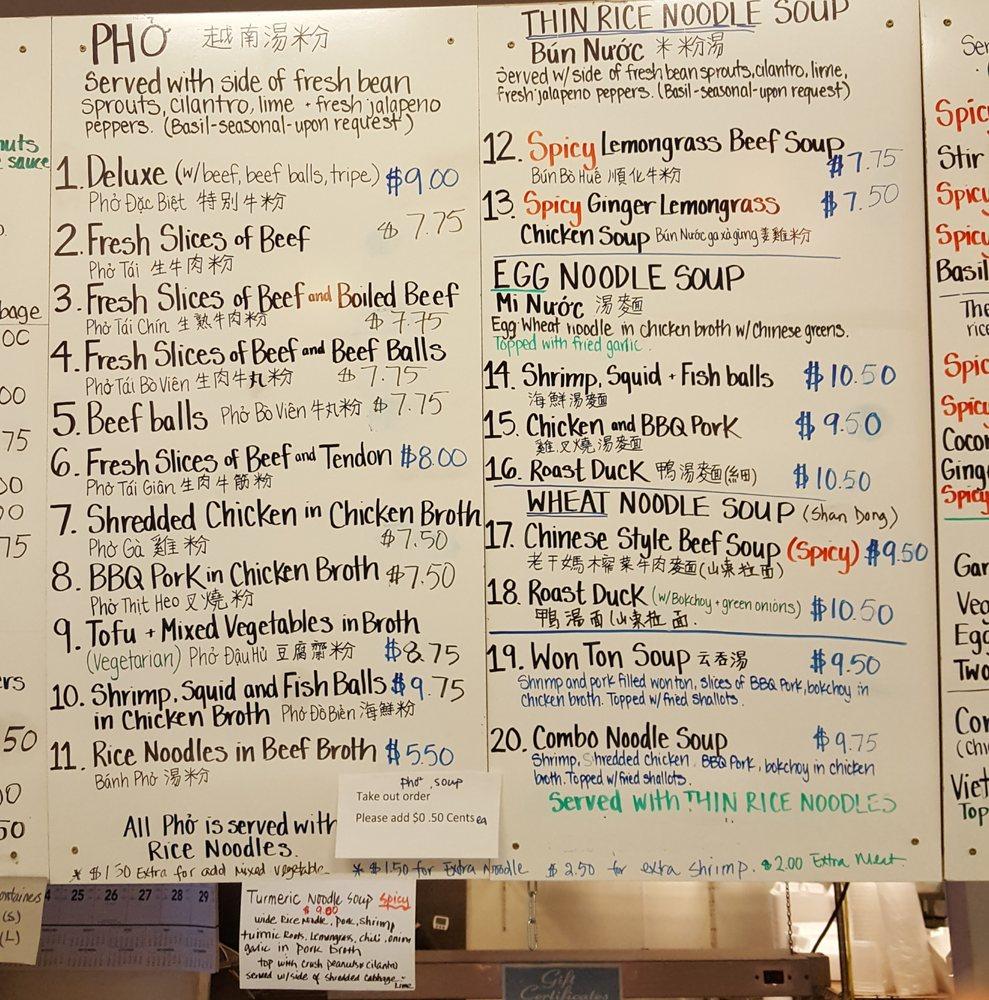 PHỞ 越南湯粉
Served with side of fresh bean
sprouts, cilantro, lime + fresh jalapeno
peppers. (Basil-seasonal-upon request)
1. Deluxe (w/beef, beef balls, tripe) $9.00
Phở Đặc Biệt 特別牛粉
2. Fresh Slices of Beef $7.75
Phở Tái 生牛肉粉
3. Fresh Slices of Beef and Boiled Beef
Phở Tái Chín 生熟牛肉粉 $7.75
4. Fresh Slices of Beef and Beef Balls
Phở Tái Bò Viên 生肉牛丸粉 $7.75
5. Beef balls Phở Bò Viên 牛丸粉 $7.75
6. Fresh Slices of Beef and Tendon $8.00
Phở Tái Giân 生肉牛筋粉
7. Shredded Chicken in Chicken Broth
Phở Gà 雞粉 $7.50
8. BBQ Pork in Chicken Broth $7.50
Phở Thịt Heo 叉燒粉
9. Tofu + Mixed Vegetables in Broth
(Vegetarian) Phở Đậu Hủ 豆腐齋粉 $8.75
10. Shrimp, Squid and Fish Balls $9.75
in Chicken Broth Phở Đồ Biển 海鮮粉
11. Rice Noodles in Beef Broth $5.50
Bánh Phở 湯粉
All Phở is served with
Rice Noodles.
Pho, soup
Take out order
Please add $0 .50 Cents ea
* $1.50 Extra for add Mixed vegetable. * $1.50 for Extra Noodle $2.50 for extra shrimp. $2.00 Extra Meat
THIN RICE NOODLE SOUP
Bún Nước 米粉湯
Served w/side of fresh bean sprouts, cilantro, lime,
fresh jalapeno peppers. (Basil-seasonal-upon request)
12. Spicy Lemongrass Beef Soup
Bún Bò Huế 順化牛粉 $7.75
13. Spicy Ginger Lemongrass $7.50
Chicken Soup Bún Nước ga xà gừng 姜雞粉
EGG NOODLE SOUP
Mì Nước 湯麵
Egg Wheat noodle in chicken broth w/Chinese greens.
Topped with fried garlic.
14. Shrimp, Squid + Fish balls $10.50
海鮮湯麵
15. Chicken and BBQ Pork $9.50
雞叉燒湯麵
16. Roast Duck 鴨湯麥面(細) $10.50
WHEAT NOODLE SOUP (Shan Dong)
17. Chinese Style Beef Soup (Spicy) $9.50
老干媽榨菜牛肉麥面(山東拉面)
18. Roast Duck (w/Bokchoy + green onions) $10.50
鴨湯面(山東拉面.
19. Won Ton Soup 云吞湯 $9.50
Shrimp and pork filled wonton, slices of BBQ Pork, bokchoy in
chicken broth. Topped w/fried shallots.
20. Combo Noodle Soup $9.75
Shrimp, Shredded chicken. BBQ Pork, bokchoy in chicken
broth. Topped w/fried shallots.
Served with THIN RICE NOODLES
nuts
sauce
bage
Spicy
Stir
Spicy
Spicy
Basil
The
rice
Spic
Spicy
Cocon
Ging
Spicy
Gar
Veg
Egg
Two
Con
(Chi
Viet
Top
ontainers
(S)
(L)
25 26 27 28 29
Turmeric Noodle Soup Spicy
$9.00
wide Rice Noodle, Pork, shrimp
turmic Roots, Lemongrass, chili, onion
garlic in pork broth
top with crush peanuts & cilantro
served w/side of shredded cabbage - lime
Gift
Certificates